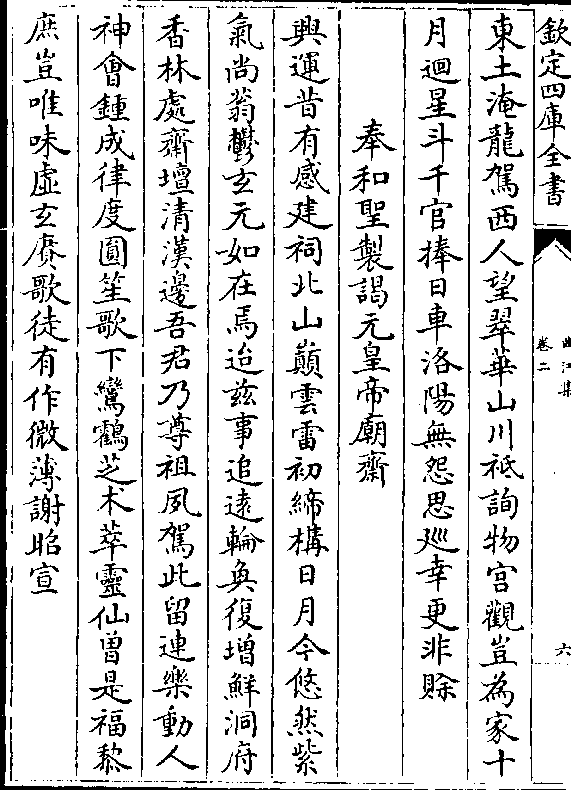 欽定四庫全書
曲江集
卷二
六
東土淹龍駕西人望翠華山川祗詢物宫觀豈為家十
月迴星斗千官捧日車洛陽無怨思廵幸更非賖
奉和聖製謁元皇帝廟齋
興運昔有感建祠北山巔雲雷初締構日月今悠然紫
氣尚蓊鬱玄元如在焉迨兹事追逺輪奐復增鮮洞府
香林處齋壇清漢邊吾君乃尊祖夙駕此留連樂動人
神會鍾成律度圓笙歌下鸞鶴芝术萃靈仙曽是福黎
庶豈唯味虚玄賡歌徒有作微薄謝昭宣